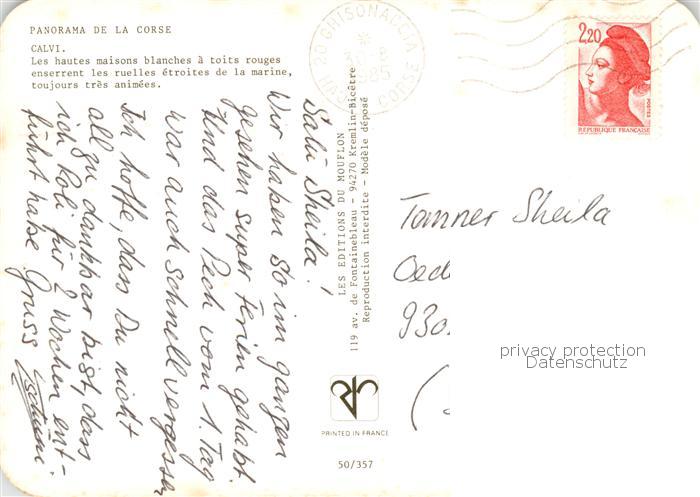 PANORAMA DE LA CORSE
CALVI.
Les hautes maisons blanches à toits rouges
enserrent les ruelles étroites de la marine,
toujours très animées.
Salü Sheila!
Wir haben so im ganzen
gesehen super Ferien gehabt.
Und das Pech vom 1. Tag
war auch schnell vergessen
Ich hoffe, dass Du nicht
all zu dankbar bist, dass
ich Roli für 2 Wochen ent-
führt habe.
Gruss
LES EDITIONS DU MOUFLON
119 av. de Fontainebleau - 94270 Kremlin-Bicêtre
Reproduction interdite - Modèle déposé
PRINTED IN FRANCE
50/357
20 GHISONACCIA
1985
CORSE
2,20
POSTES
REPUBLIQUE FRANÇAISE
Tanner Sheila
Oed
930
privacy protection
Datenschutz